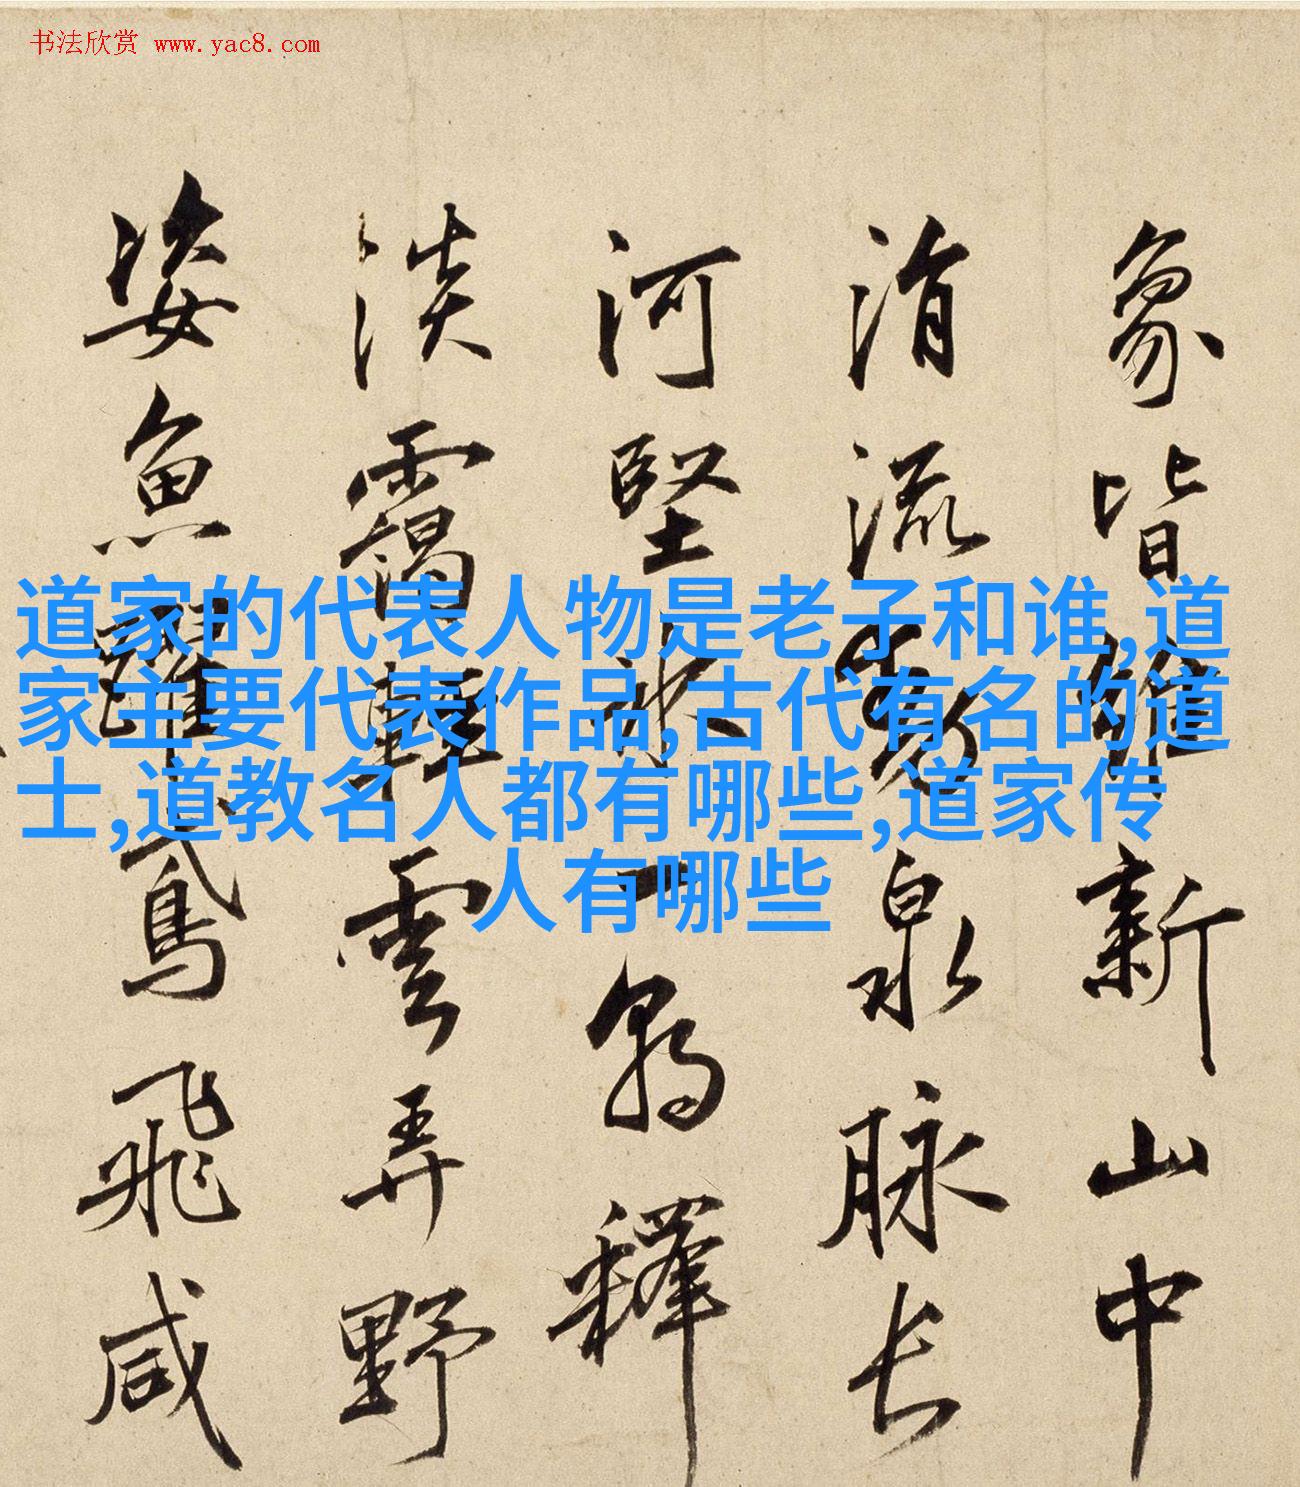 书法欣赏 www.yac8.com
象皆維新山中
涓流動泉脉長
河堅冰一朝釋
淡靄輕雲弄野
姿魚躍鳶飛咸
道家的代表人物是老子和谁,道
家主要代表作品,古代有名的道
士,道教名人都有哪些,道家传
人有哪些